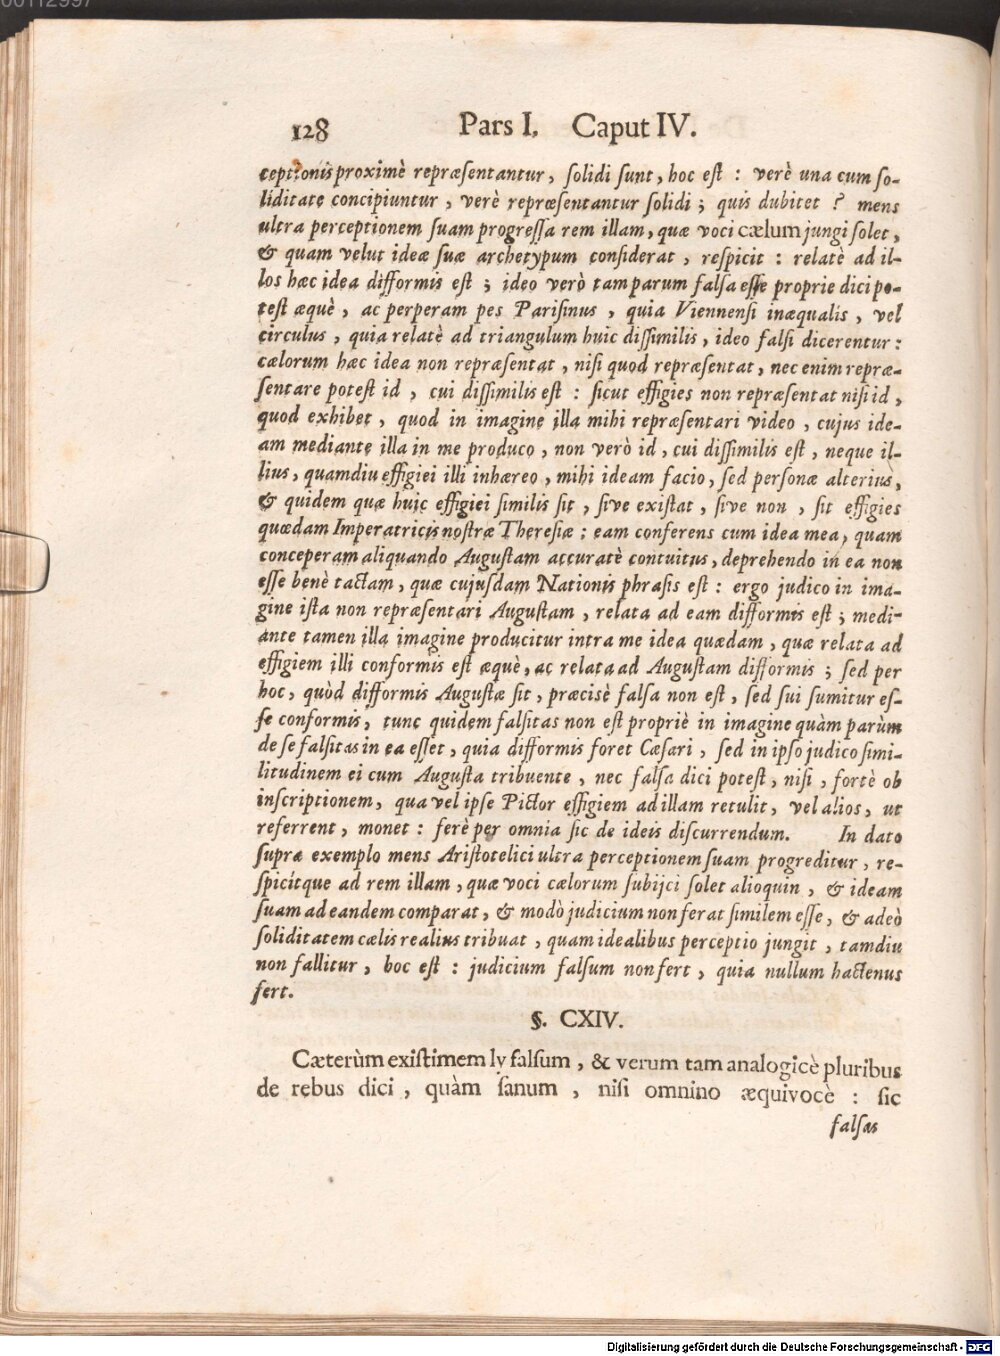 00112997
128 Pars I. Caput IV.
ceptionis proximè repræsentantur, solidi sunt, hoc est : verè una cum so-
liditate concipiuntur, verè repræsentantur solidi; quis dubitet ? mens
ultra perceptionem suam progressa rem illam, quæ voci cælum jungi solet,
& quam velut ideæ suæ archetypum considerat, respicit : relatè ad il-
los hæc idea difformis est ; ideo verò tam parum falsa esse proprie dici po-
test æquè, ac perperam pes Parisinus, quia Viennensi inæqualis, vel
circulus, quia relatè ad triangulum huic dissimilis, ideo falsi dicerentur:
cælorum hæc idea non repræsentat, nisi quod repræsentat, nec enim repræ-
sentare potest id, cui dissimilis est : sicut effigies non repræsentat nisi id,
quod exhibet, quod in imagine illa mihi repræsentari video, cujus ide-
am mediante illa in me produco, non verò id, cui dissimilis est, neque il-
lius, quamdiu effigiei illi inhæreo, mihi ideam facio, sed personæ alterius,
& quidem quæ huic effigiei similis sit, sive existat, sive non, sit effigies
quædam Imperatricis nostræ Theresiæ ; eam conferens cum idea mea, quam
conceperam aliquando Augustam accuratè contuitus, deprehendo in ea non
esse benè tactam, quæ cujusdam Nationis phrasis est : ergo judico in ima-
gine ista non repræsentari Augustam, relata ad eam difformis est ; medi-
ante tamen illa imagine producitur intra me idea quædam, quæ relata ad
effigiem illi conformis est æquè, ac relata ad Augustam difformis ; sed per
hoc, quòd difformis Augustæ sit, præcisè falsa non est, sed sui sumitur es-
se conformis, tunc quidem falsitas non est propriè in imagine quàm parùm
de se falsitas in ea esset, quia difformis foret Cæsari, sed in ipso judico simi-
litudinem ei cum Augusta tribuente, nec falsa dici potest, nisi, fortè ob
inscriptionem, qua vel ipse Pictor effigiem ad illam retulit, vel alios, ut
referrent, monet : ferè per omnia sic de ideis discurrendum. In dato
supra exemplo mens Aristotelici ultra perceptionem suam progreditur, re-
spicitque ad rem illam, quæ voci cælorum subijci solet alioquin, & ideam
suam ad eandem comparat, & modò judicium non ferat similem esse, & adeò
soliditatem cælis realius tribuat, quam idealibus perceptio jungit, tamdiu
non fallitur, hoc est : judicium falsum non fert, quia nullum hactenus
fert.
§. CXIV.
Cæterùm existimem ly falsum, & verum tam analogicè pluribus
de rebus dici, quàm sanum, nisi omnino æquivocè : sic
falsas
Digitalisierung gefördert durch die Deutsche Forschungsgemeinschaft - DFG